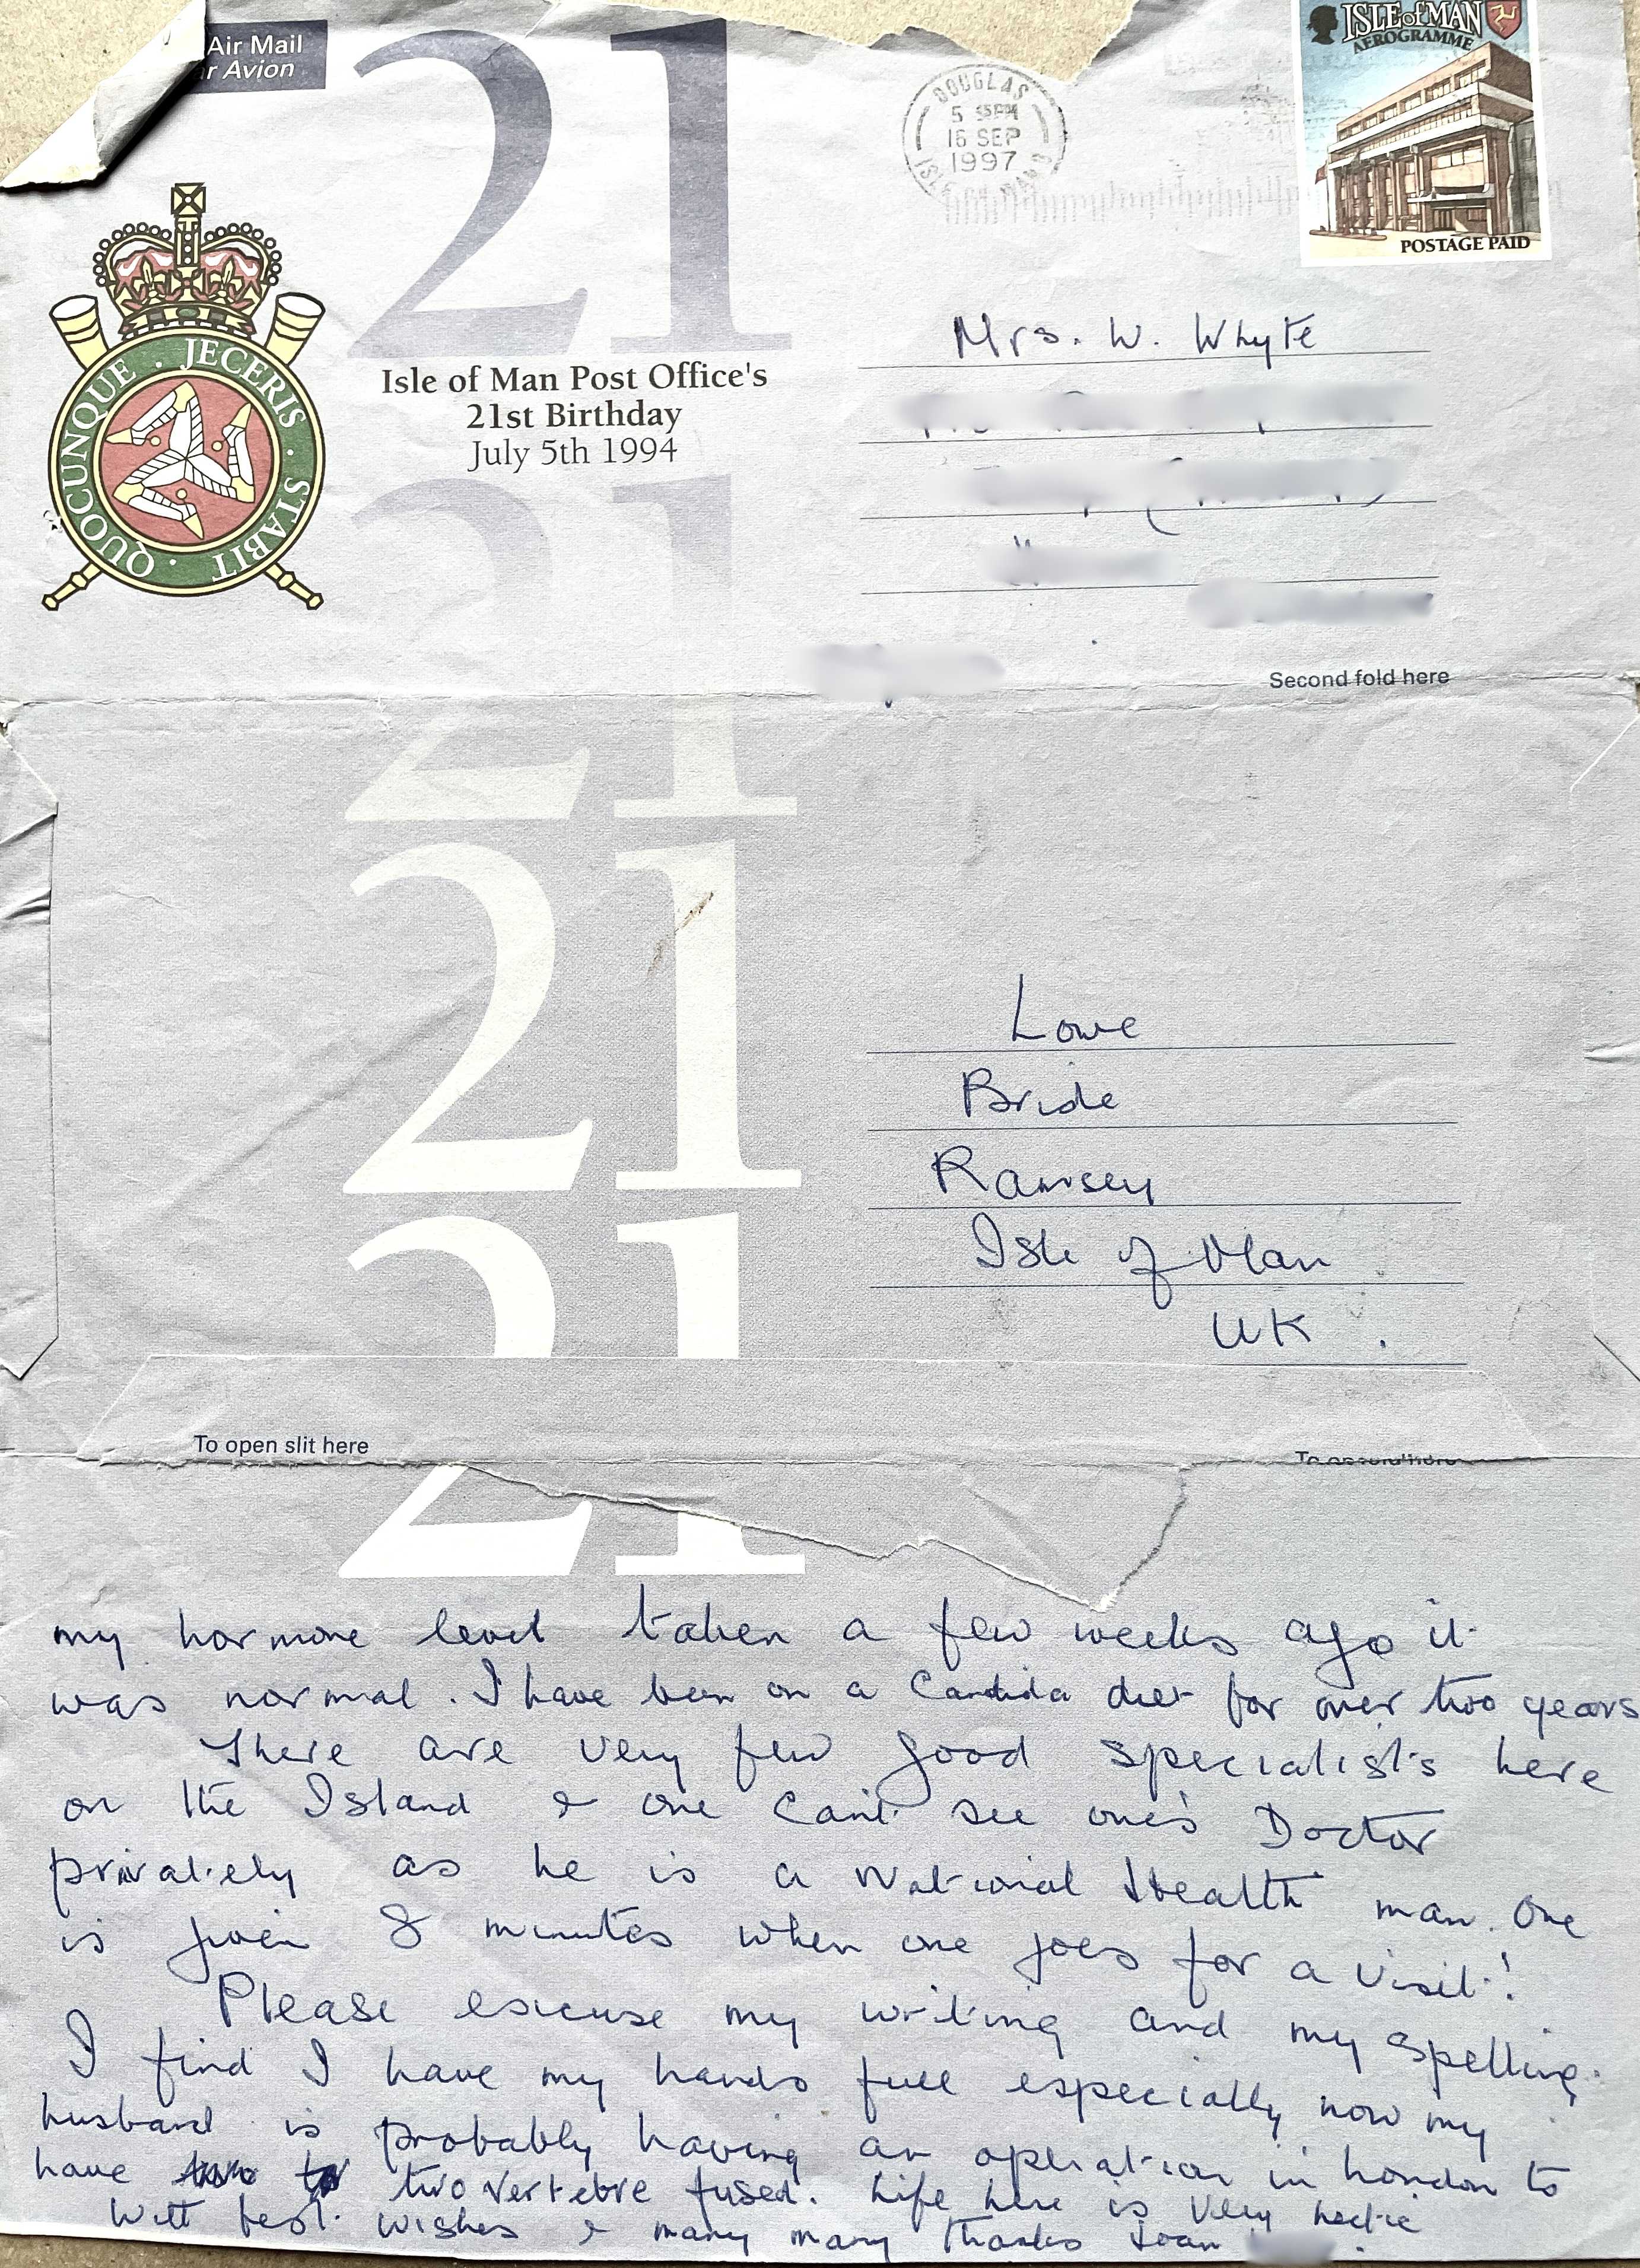 Air Mail
r Avion
21
DOUGLAS
5 PM
16 SEP
1997
ISLE MAN
ISLE of MAN
AEROGRAMME
POSTAGE PAID
QUOCUNQUE · JECERIS · STABIT ·
Isle of Man Post Office's
21st Birthday
July 5th 1994
21
Mrs. W. Whyte
Second fold here
21
21
Lowe
Bride
Ramsey
Isle of Man
UK.
21
To open slit here
21
my hormone level taken a few weeks ago it
was normal. I have been on a Candida diet for over two years
There are very few good specialists here
on the Island & one can't see one's Doctor
privately as he is a National Health man. One
is given 8 minutes when one goes for a visit!
Please excuse my writing and my spelling.
I find I have my hands full especially now my
husband is probably having an operation in London to
have two vertebre fused. Life here is very hectic
With best wishes & many many thanks Joan